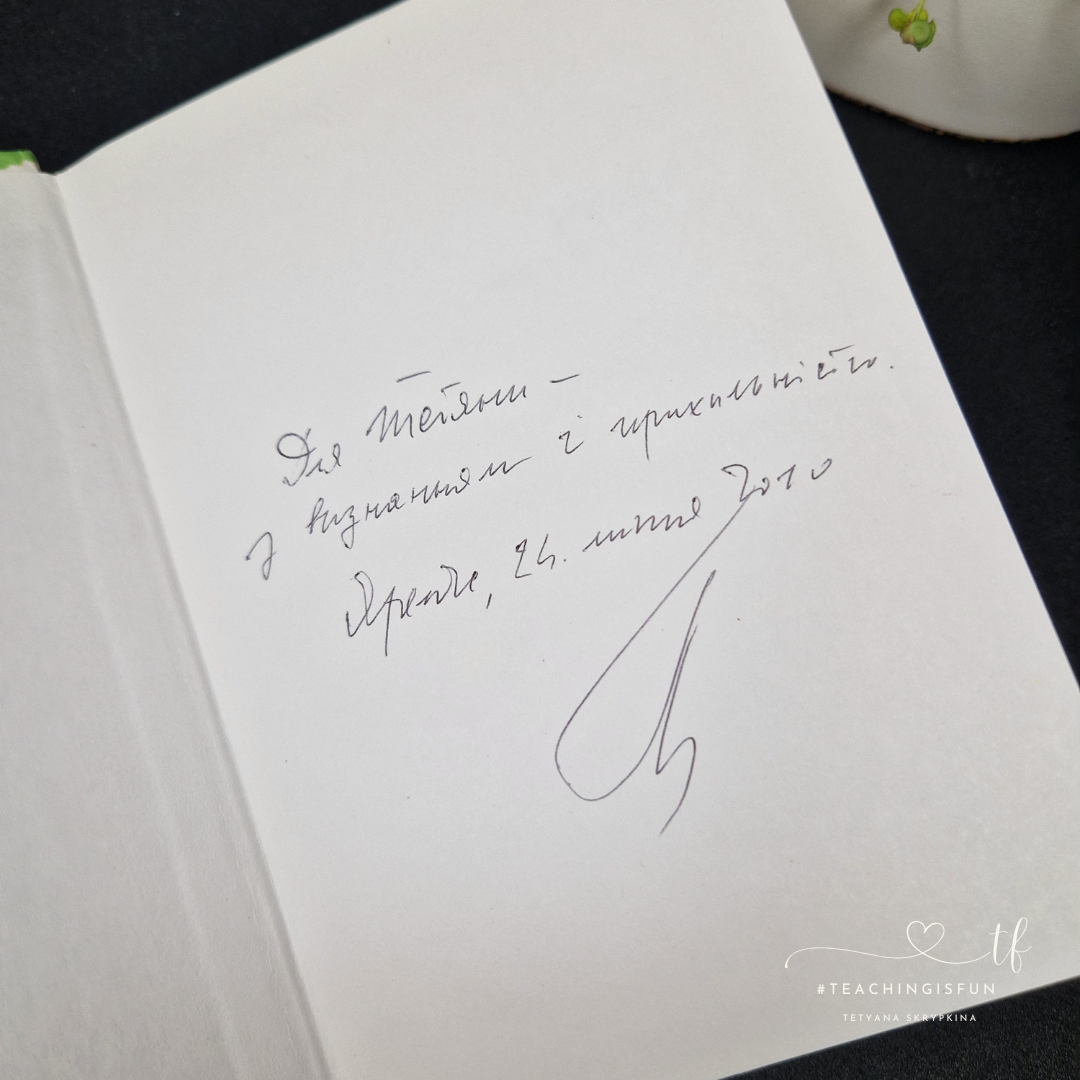 Для Тетяни –
з визнанням і прихильністю.
24. липня 2010
tf
#TEACHINGISFUN
TETYANA SKRYPKINA